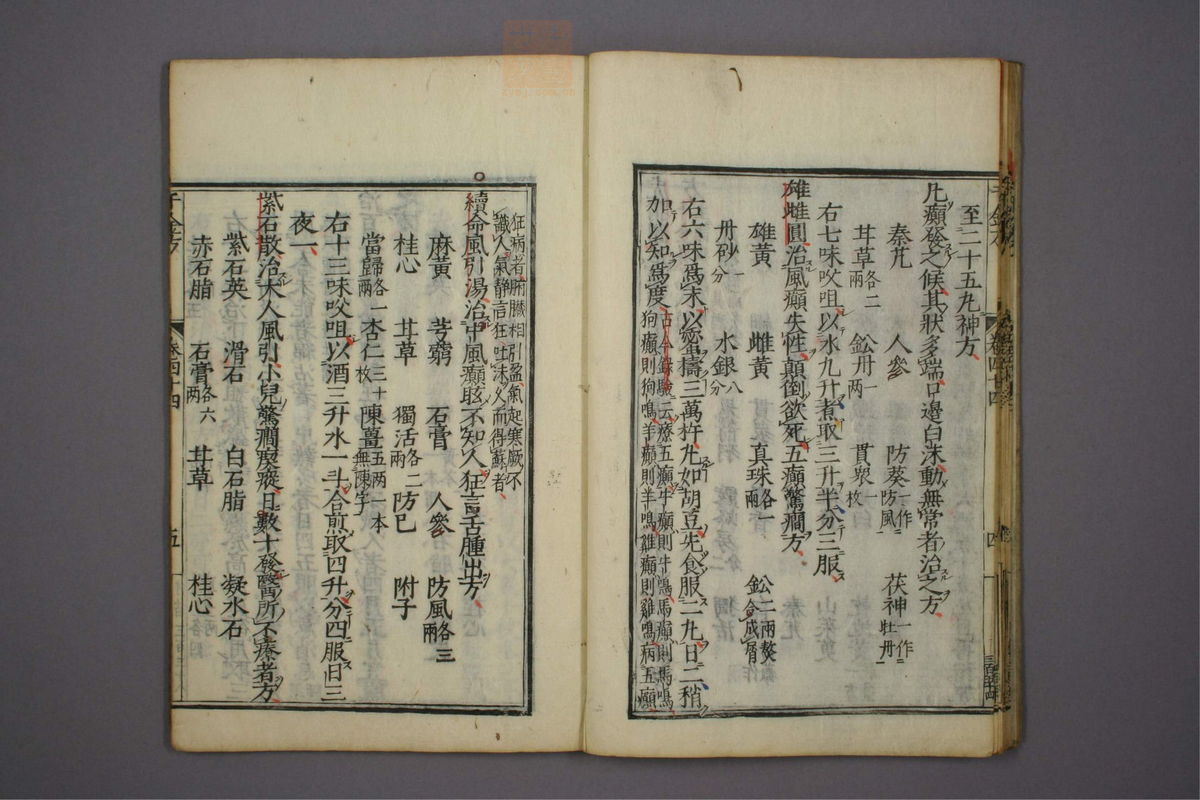 至二十五九神方
凡癲發之候其狀多端口邊白沫動無常者治之方
秦艽 人參 防葵一作防風 茯神一作牡丹
甘草各二兩 鈆丹一兩 貫衆一枚
右七味㕮咀以水九升煮取三升半分三服
雄雌圓治風癲失性顛倒欲死五癲驚癎方
雄黃 雌黃 真珠各一兩 鈆二兩熬令成屑
丹砂一分 水銀八分
右六味爲末以蜜擣三萬杵丸如胡豆先食服二丸日二稍
加以知爲度古今錄驗云療五癲牛癲則牛鳴馬癲則馬鳴
狗癲則狗鳴羊癲則羊鳴雞癲則雞鳴病五癲
狂病者腑臟相引盈氣起寒厥不
識人氣静言狂吐沫久而得蘇者
續命風引湯治中風癲眩不知人狂言舌腫出方
麻黃 芎藭 石膏 人參 防風各三兩
桂心 甘草 獨活各二兩 防已 附子
當歸各一兩 杏仁三十枚 陳薑五兩一本無陳字
右十三味㕮咀以酒三升水一斗合煎取四升分四服日三
夜一
紫石散治大人風引小兒驚癎瘈瘲日數十發醫所不療者方
紫石英 滑石 白石脂 凝水石
赤石脂 石膏各六兩 甘草 桂心
千金方
卷四十四
五
四